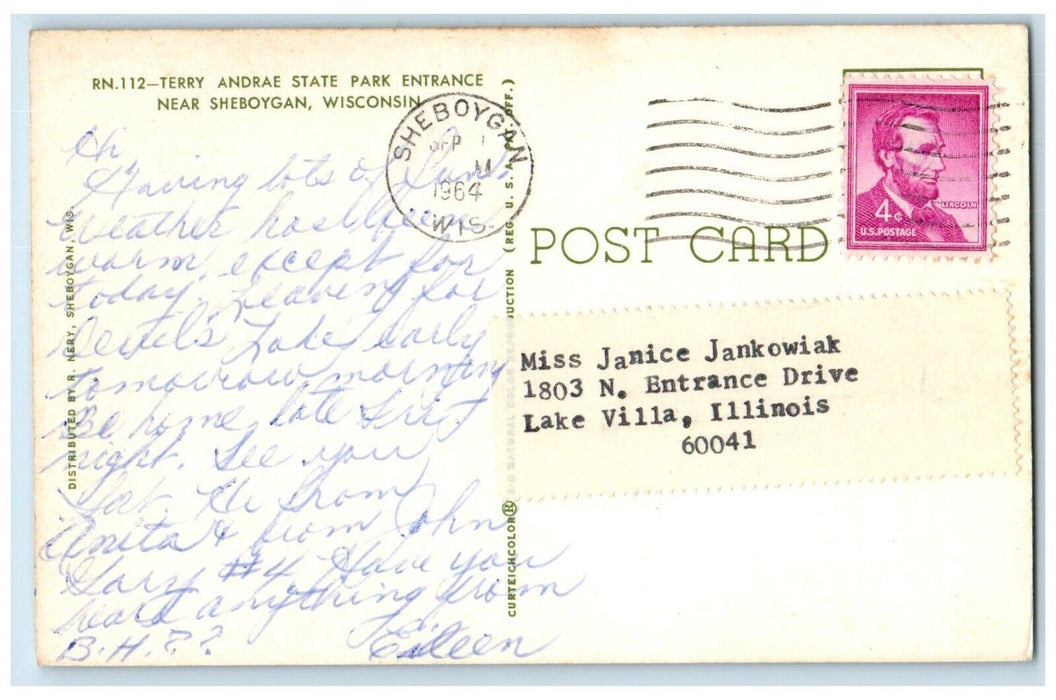 RN.112—TERRY ANDRAE STATE PARK ENTRANCE
NEAR SHEBOYGAN, WISCONSIN
SHEBOYGAN
SEP 1
M
1964
WIS.
4¢
LINCOLN
U.S.POSTAGE
POST CARD
Hi
Having lots of fun.
Weather has been
warm, except for
today. Leaving for
Devil's Lake early
tomorrow morning
Be home late Frit
night. See you
Sat. Hi from
Anita & from John
Gary #4 Have you
heard anything from
B.H.??
Eileen
Miss Janice Jankowiak
1803 N. Entrance Drive
Lake Villa, Illinois
60041
DISTRIBUTED BY R. NERY, SHEBOYGAN, WIS.
CURTEICHCOLOR® NATURAL COLOR REPRODUCTION (REG. U.S.A. PAT. OFF.)